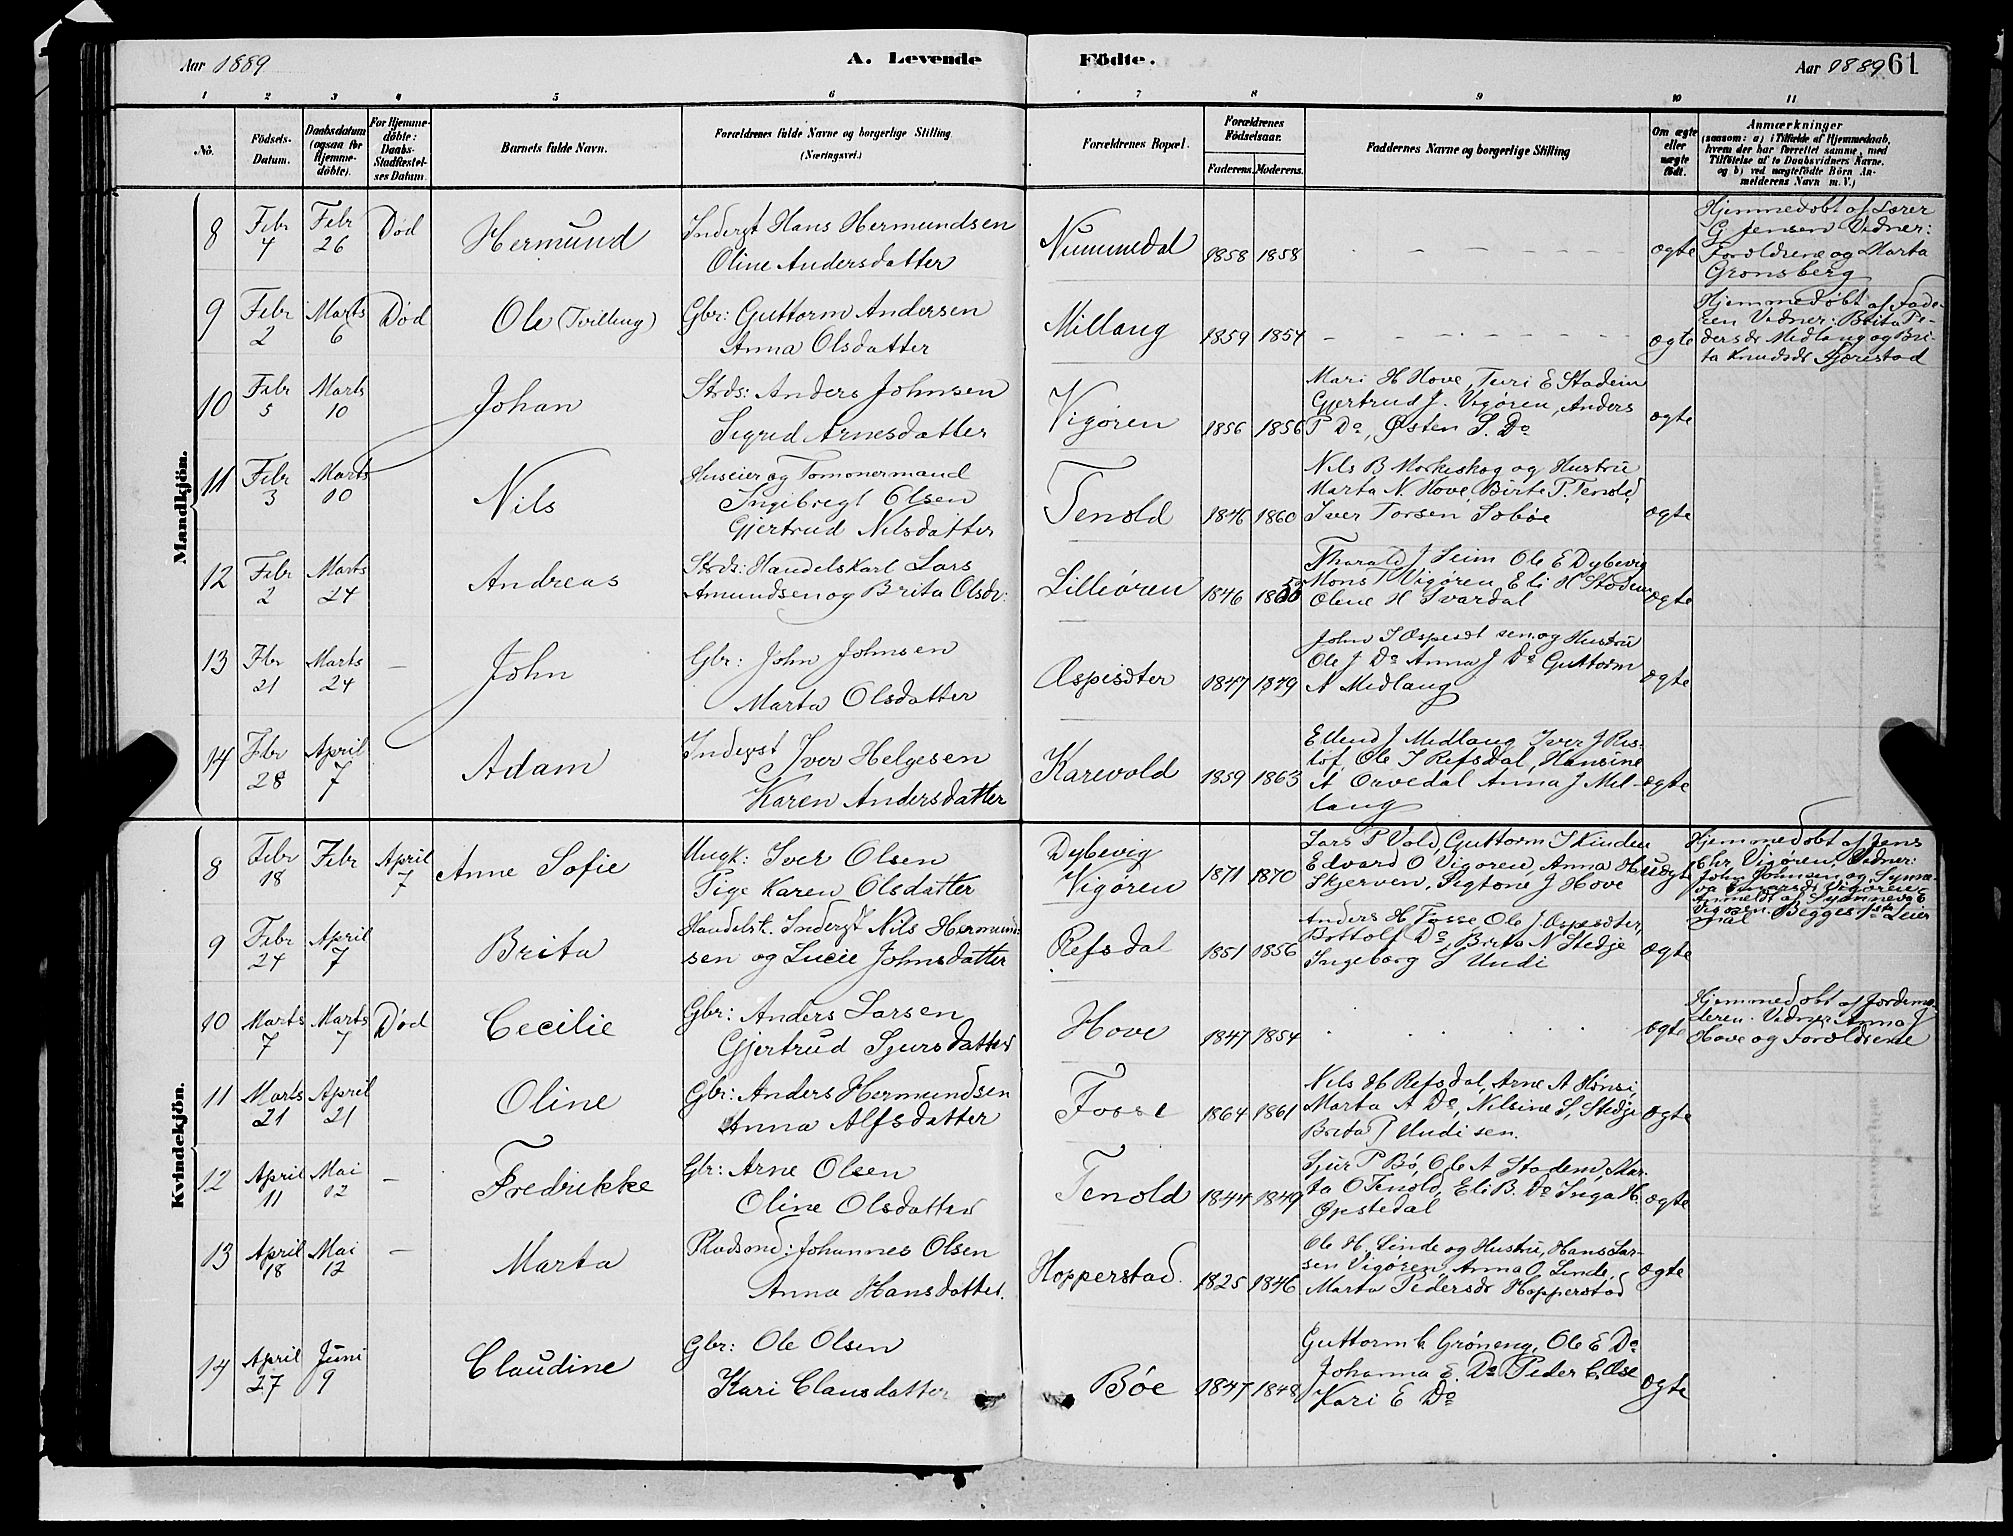 Aar 1889 A. Levende Födte. Aar 1889 61
1 2 3 4 5 6 7 8 9 10 11
No. Födsels-Datum. Daabsdatum (ogsaa for Hjemme-döbte). For Hjemme-döbte: Daabs-Stadfæstel-ses Datum. Barnets fulde Navn. Forældrenes fulde Navne og borgerlige Stilling (Næringsvei.) Forældrenes Bopæl. Forældrenes Födselsaar. Faderens. Moderens. Faddernes Navne og borgerlige Stilling Om ægte eller uægte födt. Anmærkninger (saasom: a) i Tilfælde af Hjemmedaab, hvem der har forrettet samme, med Tilföielse af to Daabsvidners Navne. og b) ved uægtefödte Börn An-melderens Navn m. V.)
Mandkjön.
8 Febr 4 Febr 26 Död Hermund
Inderst Hans Hermundsen
Oline Andersdatter
Nummedal 1858 1858 – – – – ægte
Hjemmedøbt af Lærer
G Jensen Vidner:
Forældrene og Marta
Grønsberg
9 Febr 2 Marts 6 Död Ole (Tvilling)
Gbr: Guttorm Andersen
Anna Olsdatter
Millang 1859 1854 – – – – ægte
Hjemmedøbt af Fade-
ren Vidner: Brita Pe-
dersdr Midlang og Bri-
ta Knudsdr Fjærestad
10 Febr 5 Marts 10 Johan
Strds: Anders Johnsen
Sigrid Arnesdatter
Vigøren 1856 1856
Mari H Hove, Turi E Stadein
Gjertrud J. Vigøren, Anders
P Do, Østen S. Do
ægte
11 Febr 3 Marts 10 Nils
Huseier og Tømmermand
Ingebregt Olsen
Gjertrud Nilsdatter
Tenold 1846 1860
Nils B Morkeskog og Hustru
Marta N. Hove, Birte P. Tenold,
Iver Torsen Sæbøe
ægte
12 Febr 2 Marts 24 Andreas
Strds: Handelskarl Lars
Amundsen og Brita Olsdr:
Lilleøren 1846 1855
Tharald J Seim Ole E Dybevig
Mons T Vigøren, Eli H Stadein
Oline H Svardal
ægte
13 Fbr 21 Marts 24 – John
Gbr: John Johnsen
Marta Olsdatter
Æspesæter 1847 1849
John S Æspesæt sen. og Hustru
Ole J Do Anna J Do Guttorm
A Midlang
ægte
14 Fbr 28 April 7 Adam
Inderst Iver Helgesen
Karen Andersdatter
Karevold 1859 1863
Ellend J Midlang Iver J Ris-
løf, Ole I Refsdal, Hansine
A Orvedal Anna J Mid-
lang
ægte
Kvindekjön.
8 Febr 18 Febr April 7 Anne Sofie
Ungk: Iver Olsen
Pige Karen Olsdatter
Dybevig
Vigøren 1871 1870
Lars P Vold, Guttorm J Kinden
Edvard O Vigøren, Anna H
Skjerven, Sigtone J Hove
uægte
Hjemmedøbt af Jens
Chr Vigøren, Vidner:
John Johnsen og Synne-
va Einarsdr Vigøren
Anmeldt af Synneva E
Vigøren. Begges 1ste Leier
maal
9 Febr 24 April 7 Brita
Handelsk. Inderst Nils Hermund-
sen og Lucie Johnsdatter
Refsdal 1851 1856
Anders H Fosse, Ole J. Æspesæter,
Bottolf Do, Brita N Stedje
Ingeborg S Undi
ægte
10 Marts 7 Marts 7 Død Cecilie
Gbr: Anders Larsen
Gjertrud Sjursdatter
Hove 1847 1854 . . . . ægte
Hjemmedøbt af Jordemo-
deren. Vidner Anna J
Hove og Forældrene
11 Marts 21 April 21 Oline
Gbr: Anders Hermundsen
Anna Alfsdatter
Fosse 1864 1861
Nils H Refsdal, Arne A Hønsi,
Marta A Do, Nilsine S, Stedje
Brita J Undi sen.
ægte
12 April 11 Mai 12 – Fredrikke
Gbr: Arne Olsen
Oline Olsdatter
Tenold 1844 1849
Sjur P Bø, Ole A Stadem, Mar-
ta O Tenold, Eli B. Do Inga H.
Øpstedal
ægte
13 April 18 Mai 12 – Marta
Pladsmd: Johannes Olsen
Anna Hansdatter.
Hopperstad. 1825 1846
Ole H. Linde og Hustru, Hans Lar-
sen Vigøren, Anna O Linde,
Marta Pedersdr Hopperstad
ægte
14 April 27 Juni 9 Claudine
Gbr: Ole Olsen
Kari Clausdatter
Bøe 1847 1848
Guttorm E Grøneng, Ole E Do
Johanna E. Do Peder C. Øse
Kari E Do
ægte